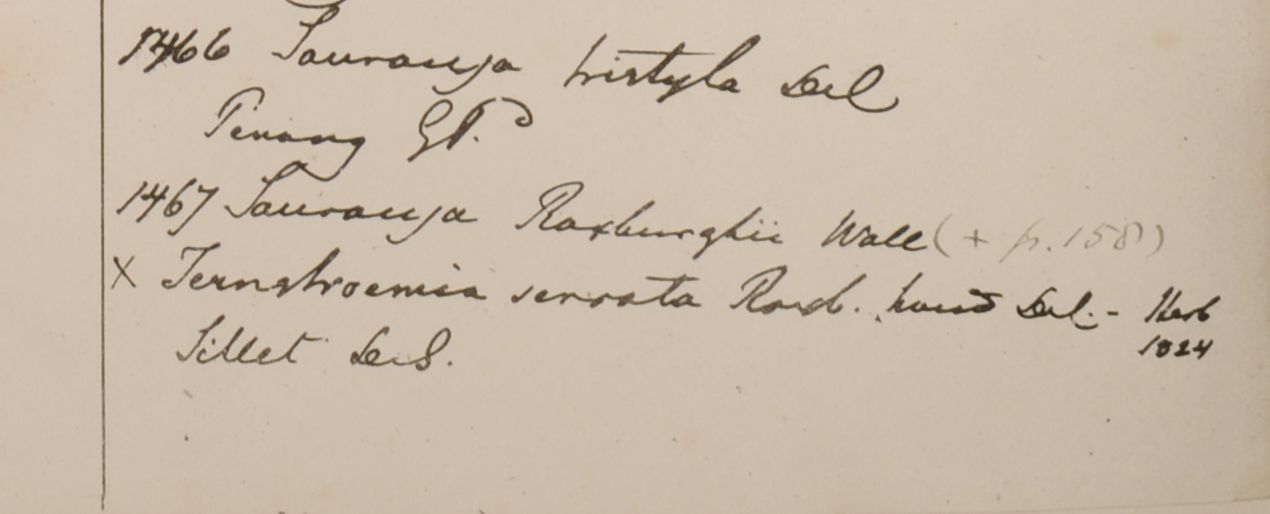 1466 Saurauja tristyla Del
Penang GP.
1467 Saurauja Roxburghii Wall (+ p. 158)
X Ternstroemia serrata Roxb. Del. - Herb
1824
Sillet